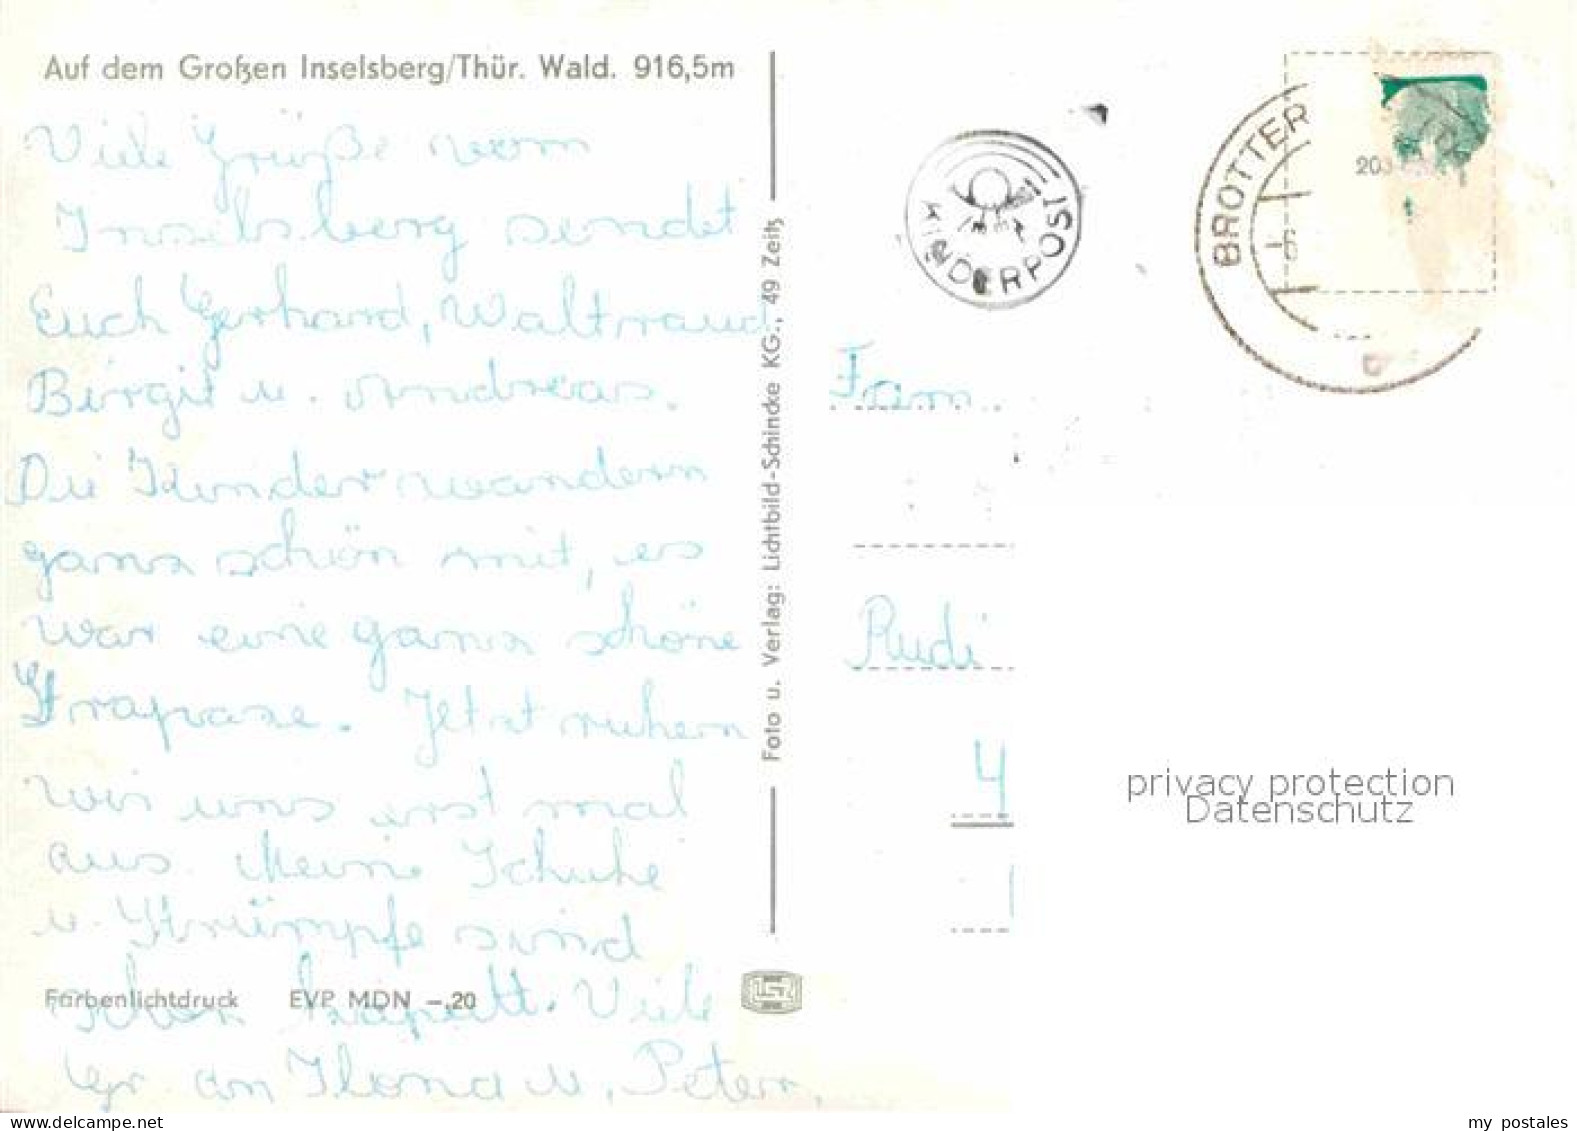 Auf dem Großen Inselsberg/Thür. Wald. 916,5m
Viele Grüße vom
Inselsberg sendet
Euch Gerhard, Waltraud
Birgit u. Andreas.
Die Kinder wandern
ganz schön mit, es
war eine ganz schöne
Strapaze. Jetzt ruhen
wir uns erst mal
aus. Meine Schuhe
u. Strümpfe sind
schon kaputt. Viele
Gr. an Ilona u. Peter.
Farbenlichtdruck EVP MDN –,20
Foto u. Verlag: Lichtbild-Schincke KG., 49 Zeitz
KINDERPOST
BROTTER
203
-6
Fam
Rudi
4
privacy protection
Datenschutz
my postales